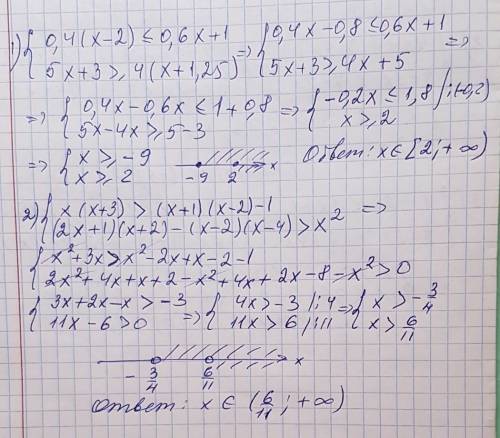 1) { 0,4(x-2) ≤ 0,6x+1 => { 0,4x-0,8 ≤ 0,6x+1 =>
5x+3 ≥ 4(x+1,25) 5x+3 ≥ 4x+5
=> { 0,4x-0,6x ≤ 1+0,8 => { -0,2x ≤ 1,8 /:(-0,2)
5x-4x ≥ 5-3 x ≥ 2
=> { x ≥ -9
x ≥ 2
-9 2 x
Ответ: x ∈ [2; +∞)
2) { x(x+3) > (x+1)(x-2)-1 =>
(2x+1)(x+2)-(x-2)(x-4) > x²
{ x²+3x > x²-2x+x-2-1
2x²+4x+x+2-x²+4x+2x-8-x² > 0
{ 3x+2x-x > -3 => { 4x > -3 /:4 => { x > -3/4
11x-6 > 0 11x > 6 /:11 x > 6/11
-3/4 6/11 x
Ответ: x ∈ (6/11; +∞)